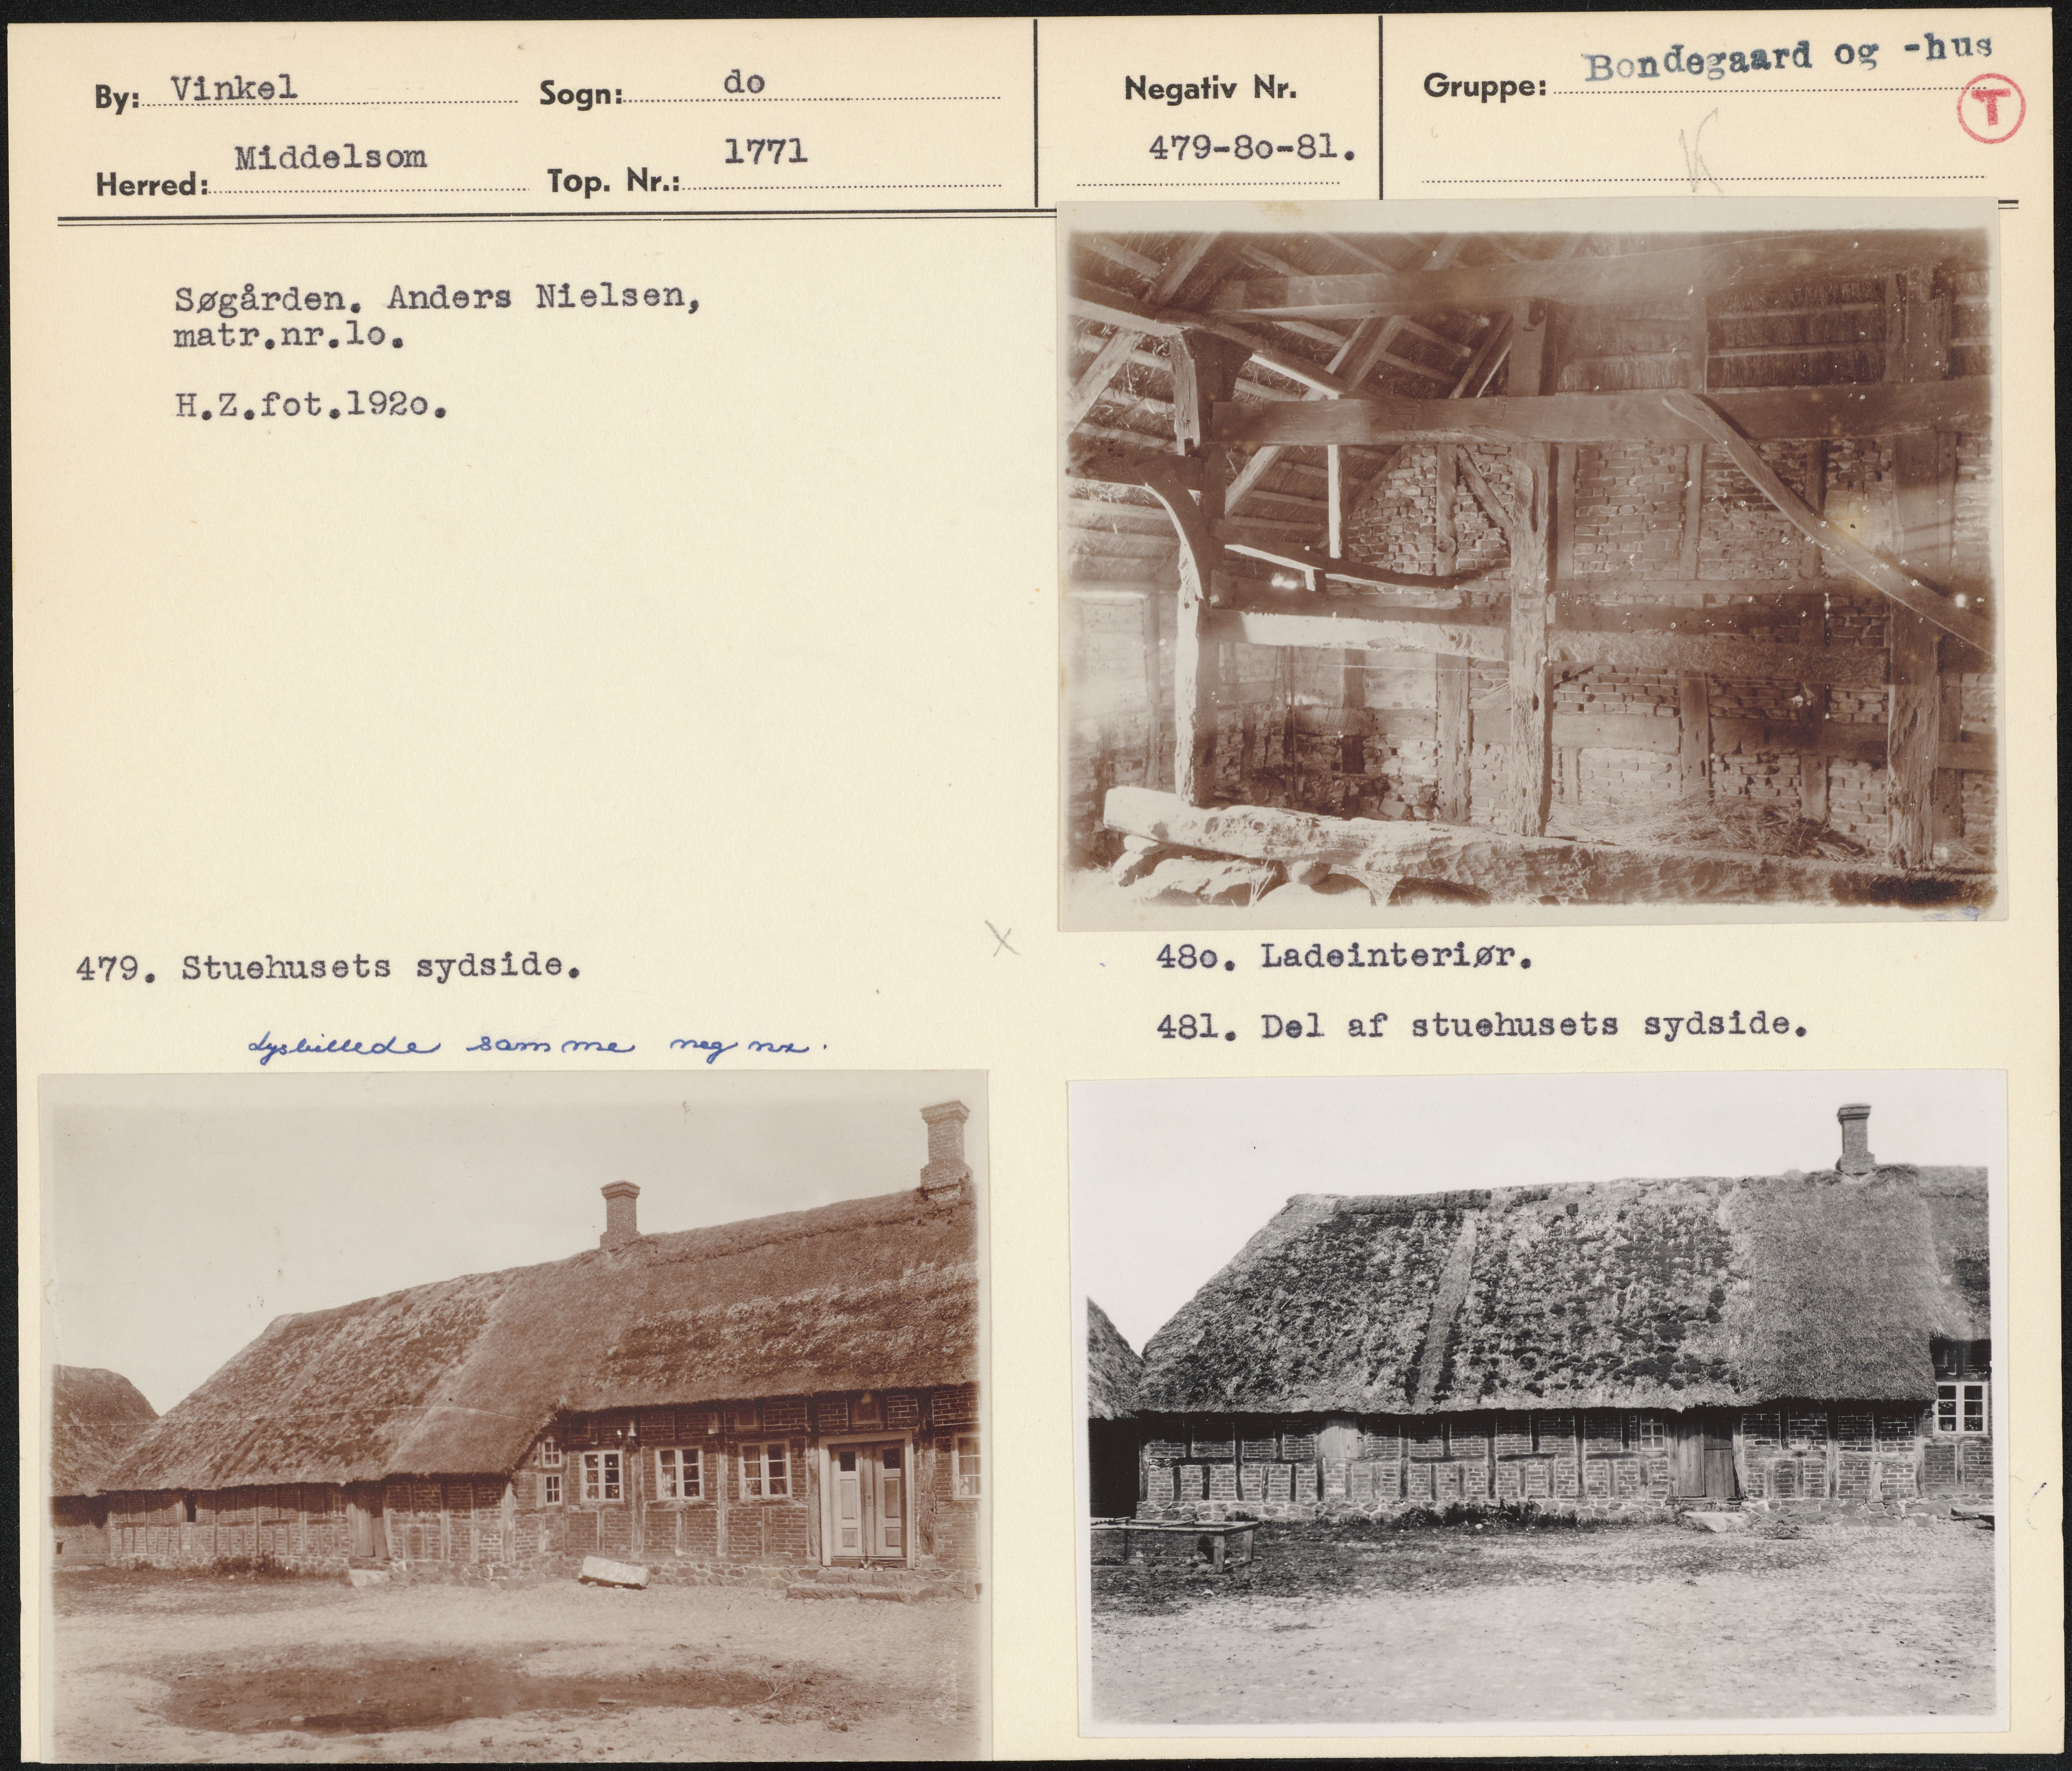 By: Vinkel
Sogn: do
Negativ Nr.
Gruppe: Bondegaard og -hus
T
Herred: Middelsom
Top. Nr.: 1771
479-8o-81.
Søgården. Anders Nielsen,
matr.nr.lo.
H.Z.fot.192o.
479. Stuehusets sydside.
Lysbillede samme neg nr.
48o. Ladeinteriør.
481. Del af stuehusets sydside.